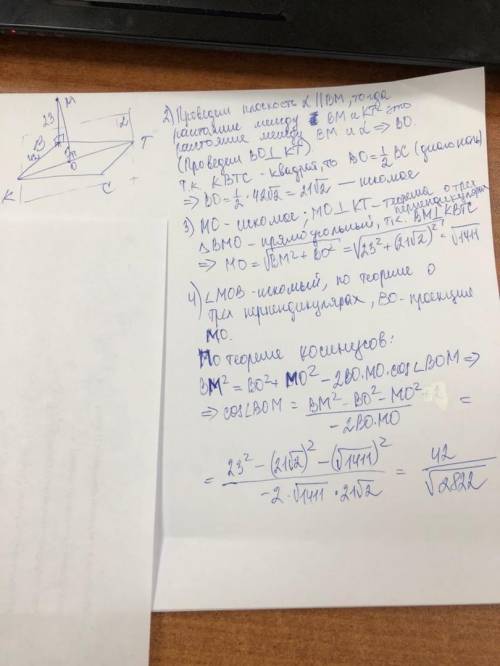 M
23
B
α
T
42
O
K
C
2) Проведём плоскость α || BM, тогда
расстояние между BM и KT это
расстояние между BM и α ⇒ BO.
(Проведём BO⊥KT)
Т.к. KBTC - квадрат, то BO = 1/2 BC (диагональ)
⇒ BO = 1/2 · 42√2 = 21√2 — искомое
3) MO - искомое; MO⊥KT - теорема о трёх
перпендикулярах
△BMO - прямоугольный, т.к. BM⊥KBTC
⇒ MO = √BM² + BO² = √23² + (21√2)² = √1411
4) ∠MOB - искомый, по теореме о
трёх перпендикулярах, BO - проекция
MO.
По теореме косинусов:
BM² = BO² + MO² - 2BO·MO·cos∠BOM ⇒
⇒ cos∠BOM = BM² - BO² - MO² / -2BO·MO =
= 23² - (21√2)² - (√1411)² / -2·√1411·21√2 = 42 / √2822